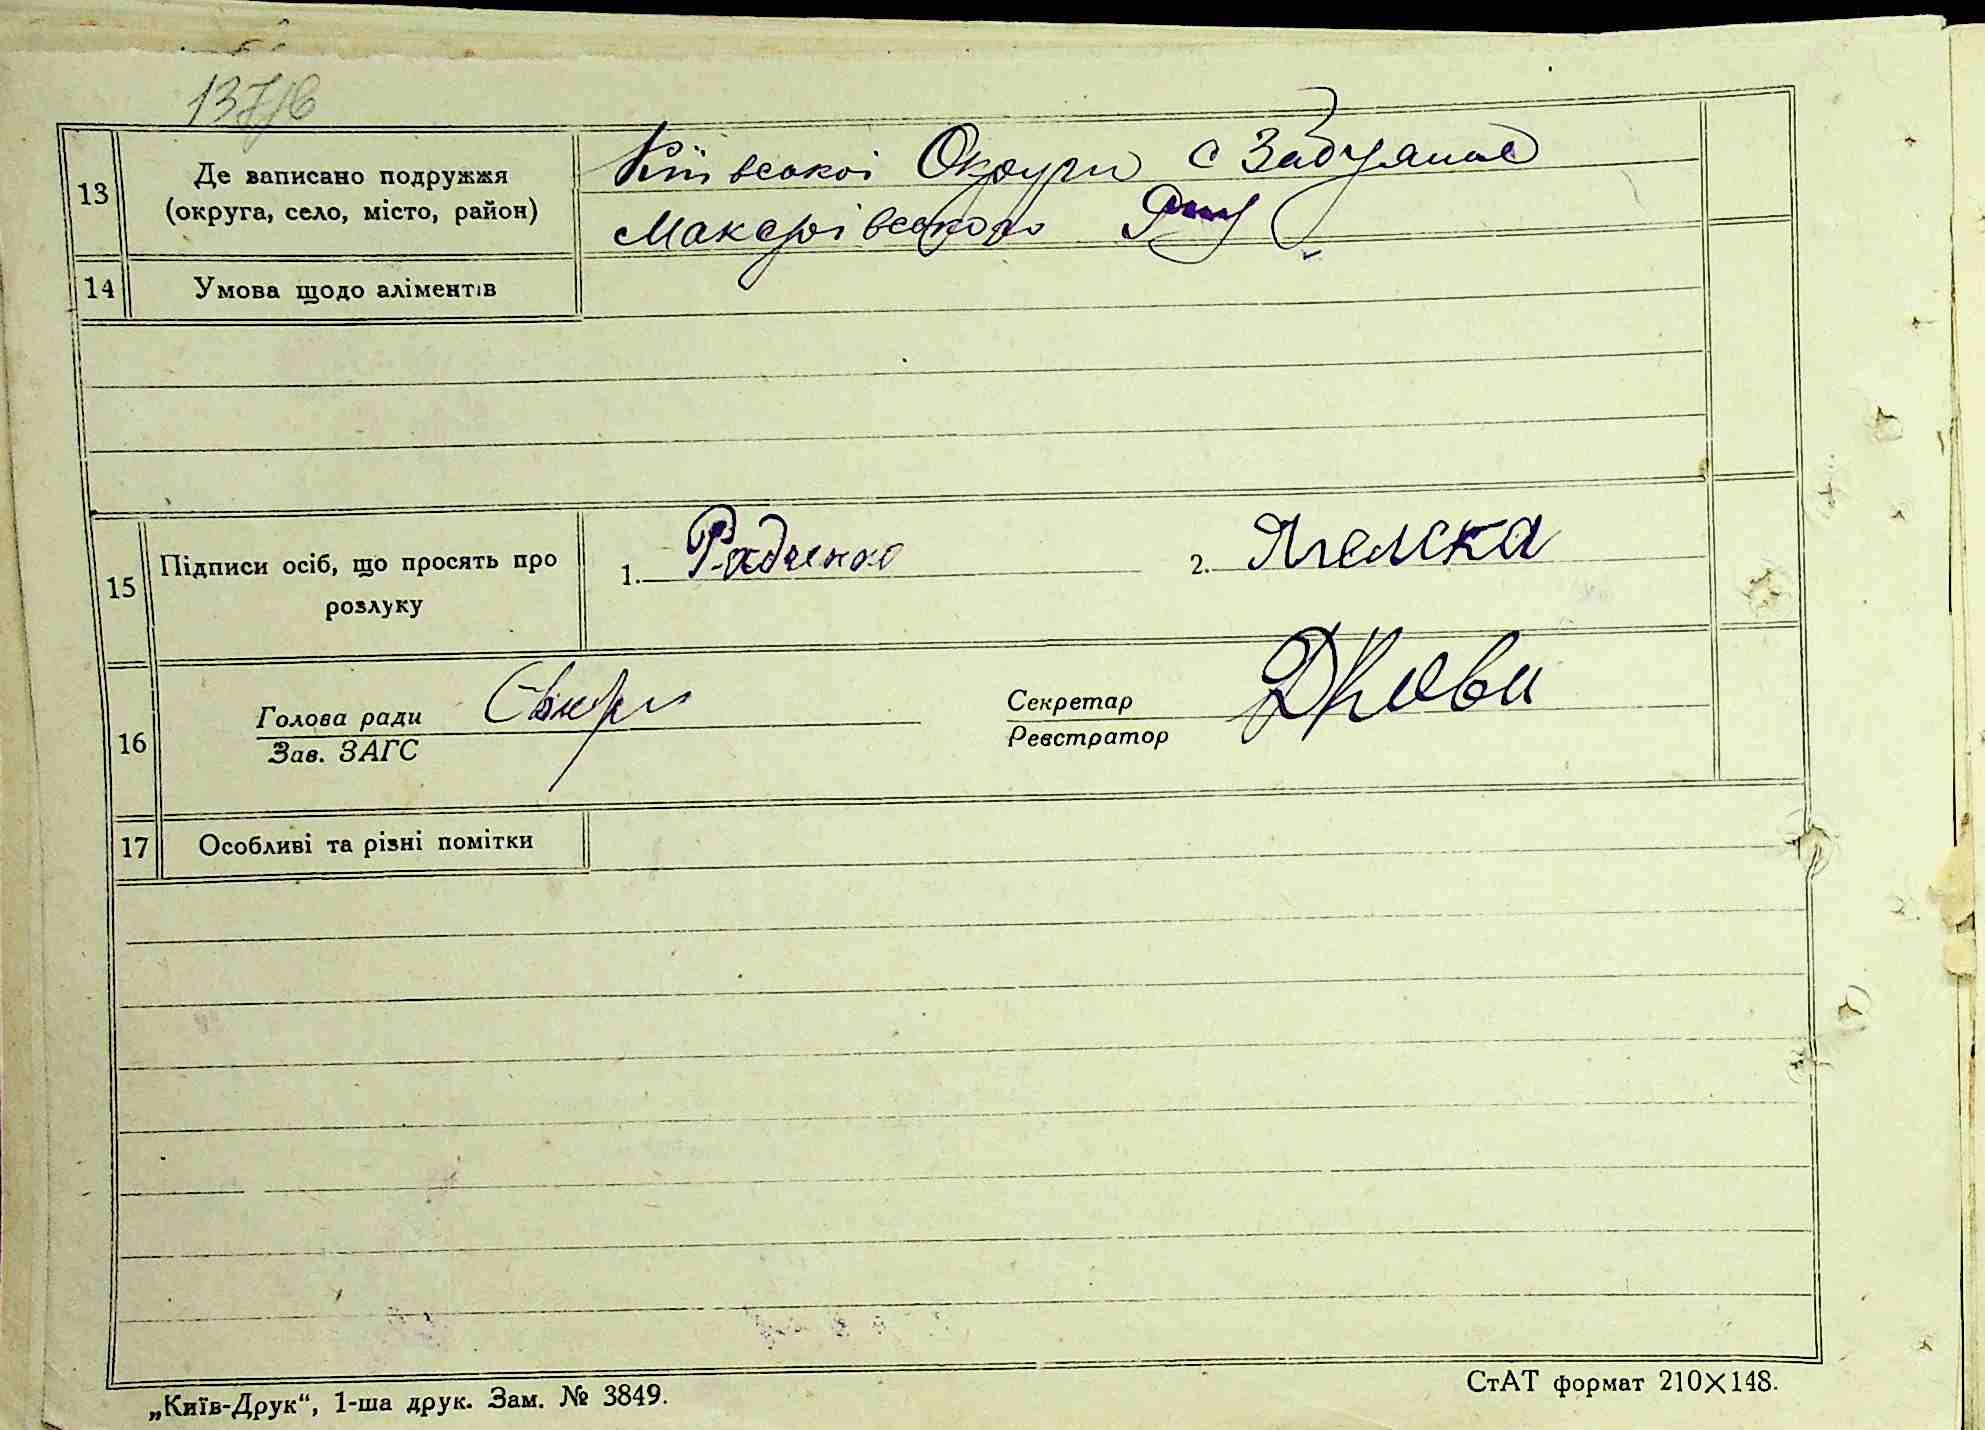 13
Де записано подружжя
(округа, село, місто, район)
Київської Округи с Забуяння
Макарівського Р-ну
14
Умова щодо аліментів
15
Підписи осіб, що просять про
розлуку
1. Радченко
2.
16
Голова ради
Зав. ЗАГС
Секретар
Реєстратор
17
Особливі та різні помітки
„Київ-Друк“, 1-ша друк. Зам. № 3849.
СтАТ формат 210×148.